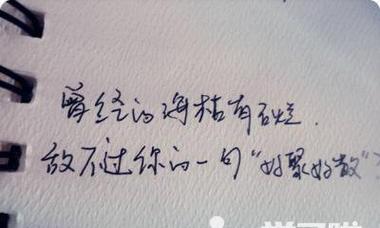 曾经的海枯有石烂.
敌不过你的一句“好聚好散”